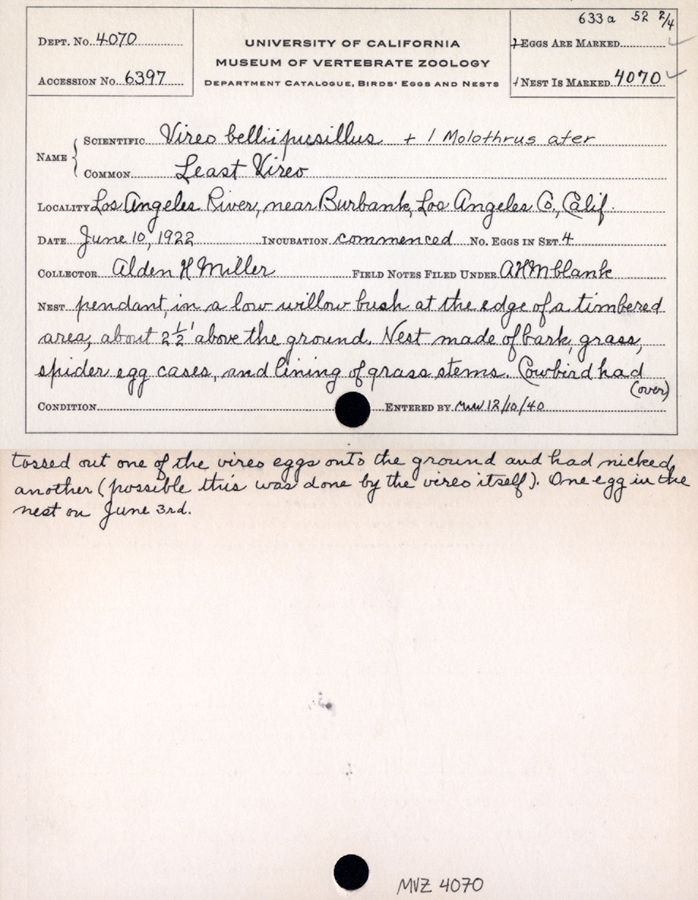 633a 52 2/4
DEPT. NO. 4070
UNIVERSITY OF CALIFORNIA
EGGS ARE MARKED
MUSEUM OF VERTEBRATE ZOOLOGY
ACCESSION NO. 6397
DEPARTMENT CATALOGUE, BIRDS' EGGS AND NESTS
NEST IS MARKED 4070
NAME
SCIENTIFIC Vireo bellii pusillus + 1 Molothrus ater
COMMON Least Vireo
LOCALITY Los Angeles River, near Burbank, Los Angeles Co., Calif.
DATE June 10, 1922 INCUBATION commenced NO. EGGS IN SET 4
COLLECTOR Alden H Miller FIELD NOTES FILED UNDER AHM-blank
NEST pendant, in a low willow bush at the edge of a timbered
area, about 2½' above the ground. Nest made of bark, grass,
spider egg cases, and lining of grass stems. Cowbird had
(over)
CONDITION ENTERED BY 12/10/40
tossed out one of the vireo eggs onto the ground and had nicked
another (possible this was done by the vireo itself). One egg in the
nest on June 3rd.
MVZ 4070